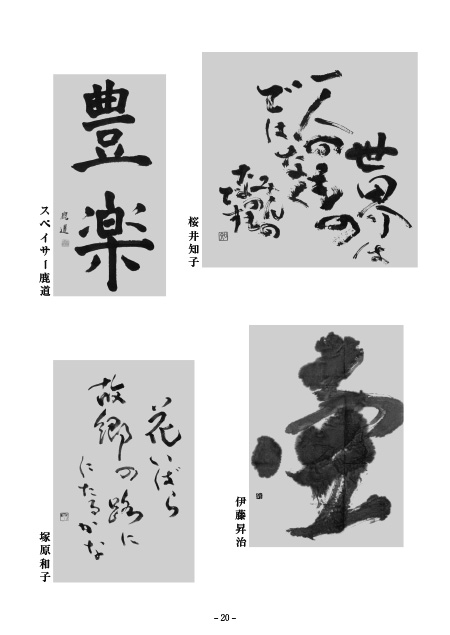 世界は
一人のもの
では
なく
みんなの
桜井知子
豊楽
鹿道
スペイサー鹿道
伊藤昇治
花いばら
故郷の路に
にたるかな
塚原和子
- 20 -